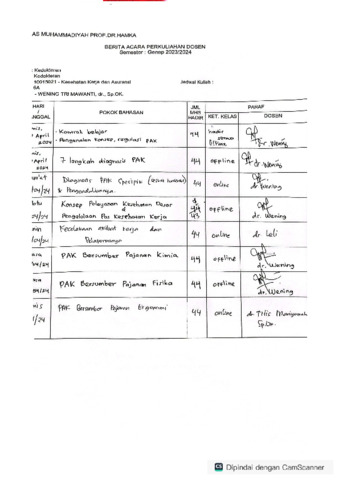 AS MUHAMMADIYAH PROF.DR.HAMKA
BERITA ACARA PERKULIAHAN DOSEN
Semester : Genap 2023/2024
: Kedokteran
Kedokteran
- Kesehatan Kerja dan Asuransi
Jadwal Kuliah :
6A
- WENING TRI MAWANTI, dr., Sp.OK.
HARI / ANGGAL
POKOK BAHASAN
JML MHS HADIR
KET. KELAS
PARAF
DOSEN
April
- Kontrak belajar
- Pengenalan konsep, regulasi PAK
44
Offline
dr Wening
April
7 langkah diagnosis PAK
44
offline
dr Wening
/24
Diagnosis PAK Spesifik
& Pengendaliannya
44
online
dr Wening
/24
Konsep Pelayanan Kesehatan Dasar
&
Pengelolaan Kesehatan Kerja
44
43
offline
dr. Wening
Kecelakaan akibat Kerja dan
44
online
dr Leli
PAK Bersumber Pajanan Kimia
44
offline
dr. Wening
PAK Bersumber Pajanan Fisika
44
offline
dr. Wening
/24
PAK Bersumber Pajanan Ergonomi
44
online
dr Titis
Sp.Ok
CS Dipindai dengan CamScanner